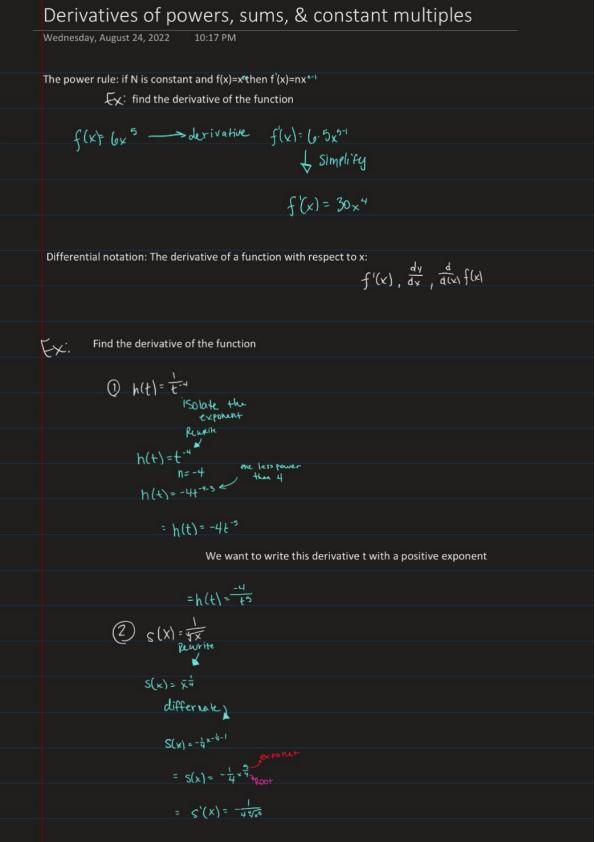 Derivatives of powers, sums, & constant multiples
Wednesday, August 24, 2022 10:17 PM
The power rule: if N is constant and f(x)=xⁿ then f'(x)=nxⁿ⁻¹
Ex: find the derivative of the function
f(x)= 6x⁵ ⟶ derivative f'(x)= 6·5x⁵⁻¹
↓ simplify
f'(x) = 30x⁴
Differential notation: The derivative of a function with respect to x:
f'(x), dy/dx, d/d(x) f(x)
Ex: Find the derivative of the function
① h(t)= 1/t⁻⁴
isolate the
exponent
Rewrite
h(t)=t⁻⁴
n=-4
one less power
than 4
h(t)= -4t
= h(t)= -4t⁻⁵
We want to write this derivative t with a positive exponent
= h(t)= -4/t⁵
② s(x)= 1/∜x
Rewrite
s(x)= x^-1/4
differnate
s(x)= -1/4 x^-1/4-1
exponet
= s(x)= -1/4 x
Root
= s'(x)= -1/4∜x⁵